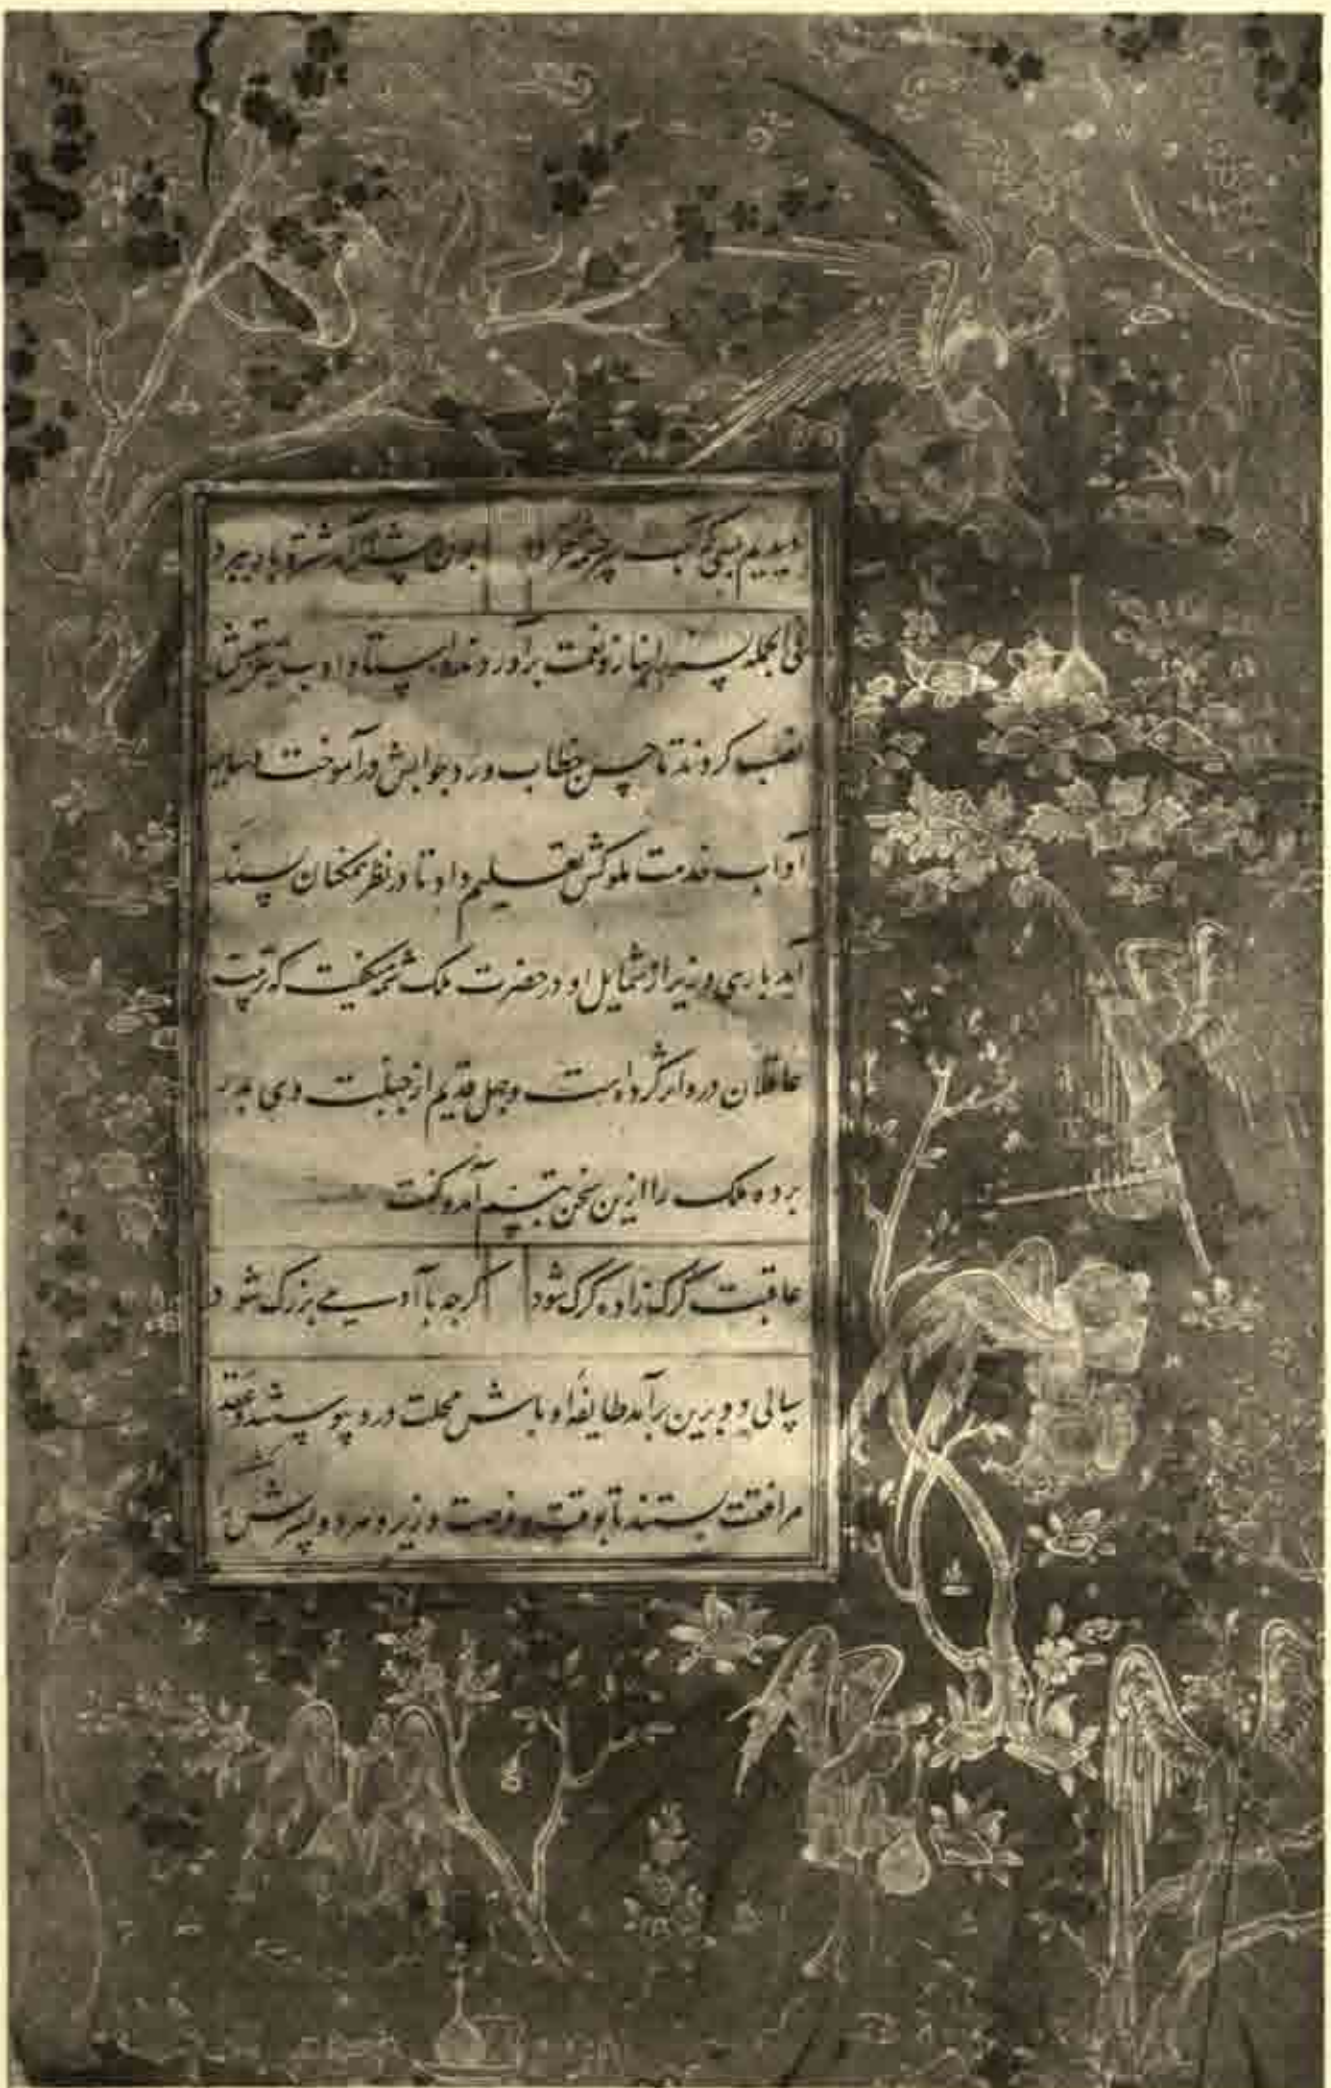 دیدیم بسی که آب سرچشمه خرد چون بیشتر آمد شتر و بار ببرد
فی الجمله پسر را بناز و نعمت برآوردند و استاد ادب بتربیتش
نصب کردند تا حسن خطاب و رد جوابش درآموخت و سایر
آداب خدمت ملوکش تعلیم داد تا در نظر همکنان پسند
آمد باری وزیر از شمایل او در حضرت ملک شمه میگفت که تربیت
عاقلان درو اثر کرده است و جهل قدیم از جبلت وی بدر
برده ملک را ازین سخن تبسم آمد و گفت
عاقبت گرک زاده گرک شود گرچه با آدمی بزرک شود
سالی دو برین برآمد طایفه اوباش محلت درو پیوستند و عقد
مرافقت بستند تا بوقت فرصت وزیر و هر دو پسرش را